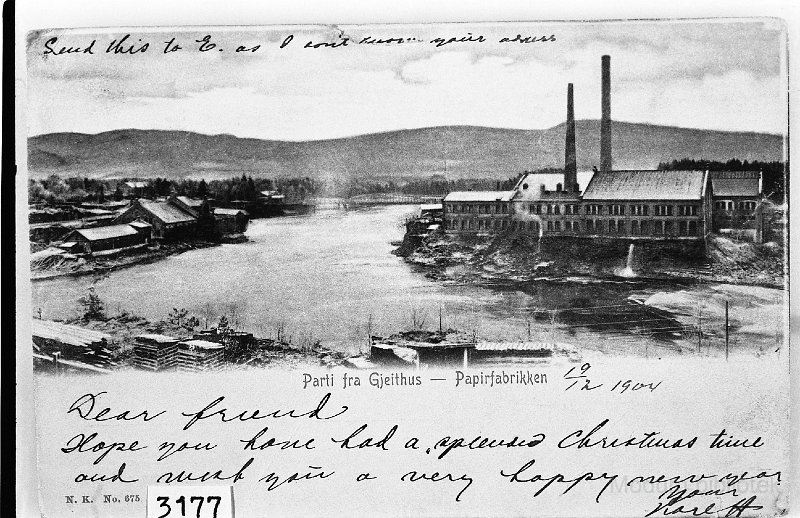 Send this to E. as I dont know your adress
Parti fra Gjeithus — Papirfabrikken 19/12 1904
Dear friend
Hope you have had a splendid Christmas time
and wish you a very happy new year
Your
Kare H
N. K. No. 675
3177